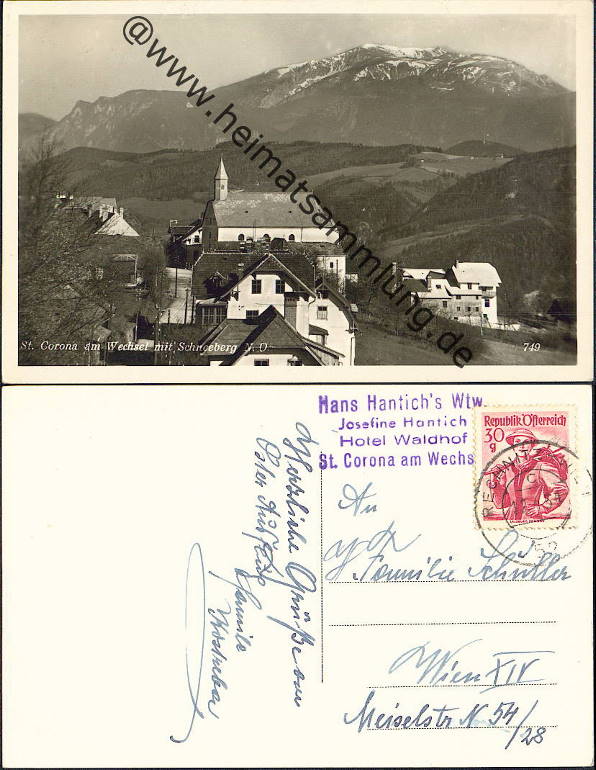 @www.heimatsammlung.de
St. Corona am Wechsel mit Schneeberg N. Ö.
749
Hans Hantich's Wtw.
Josefine Hantich
Hotel Waldhof
St. Corona am Wechs
Republik Österreich
30
g
Herzliche Grüße vom
Oster Ausflug
Familie
An
Familie Schüller
Wien XIV
Meiselstr N 54/
28